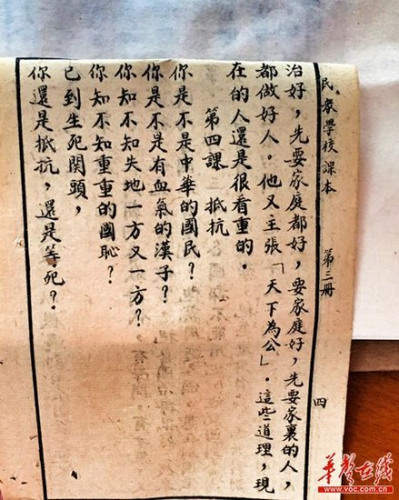 民众學校課本　第三册　四
治好，先要家庭都好，要家庭好，先要家裏的人，
都做好人。他又主張「天下為公」。這些道理，現
在的人還是很看重的。
第四課　抵抗
你是不是中華的國民？
你是不是有血氣的漢子？
你知不知失地一方又一方？
你知不知重重的國恥？
已到生死関頭，
你還是抵抗，還是等死？
華聲在线
www.voc.com.cn